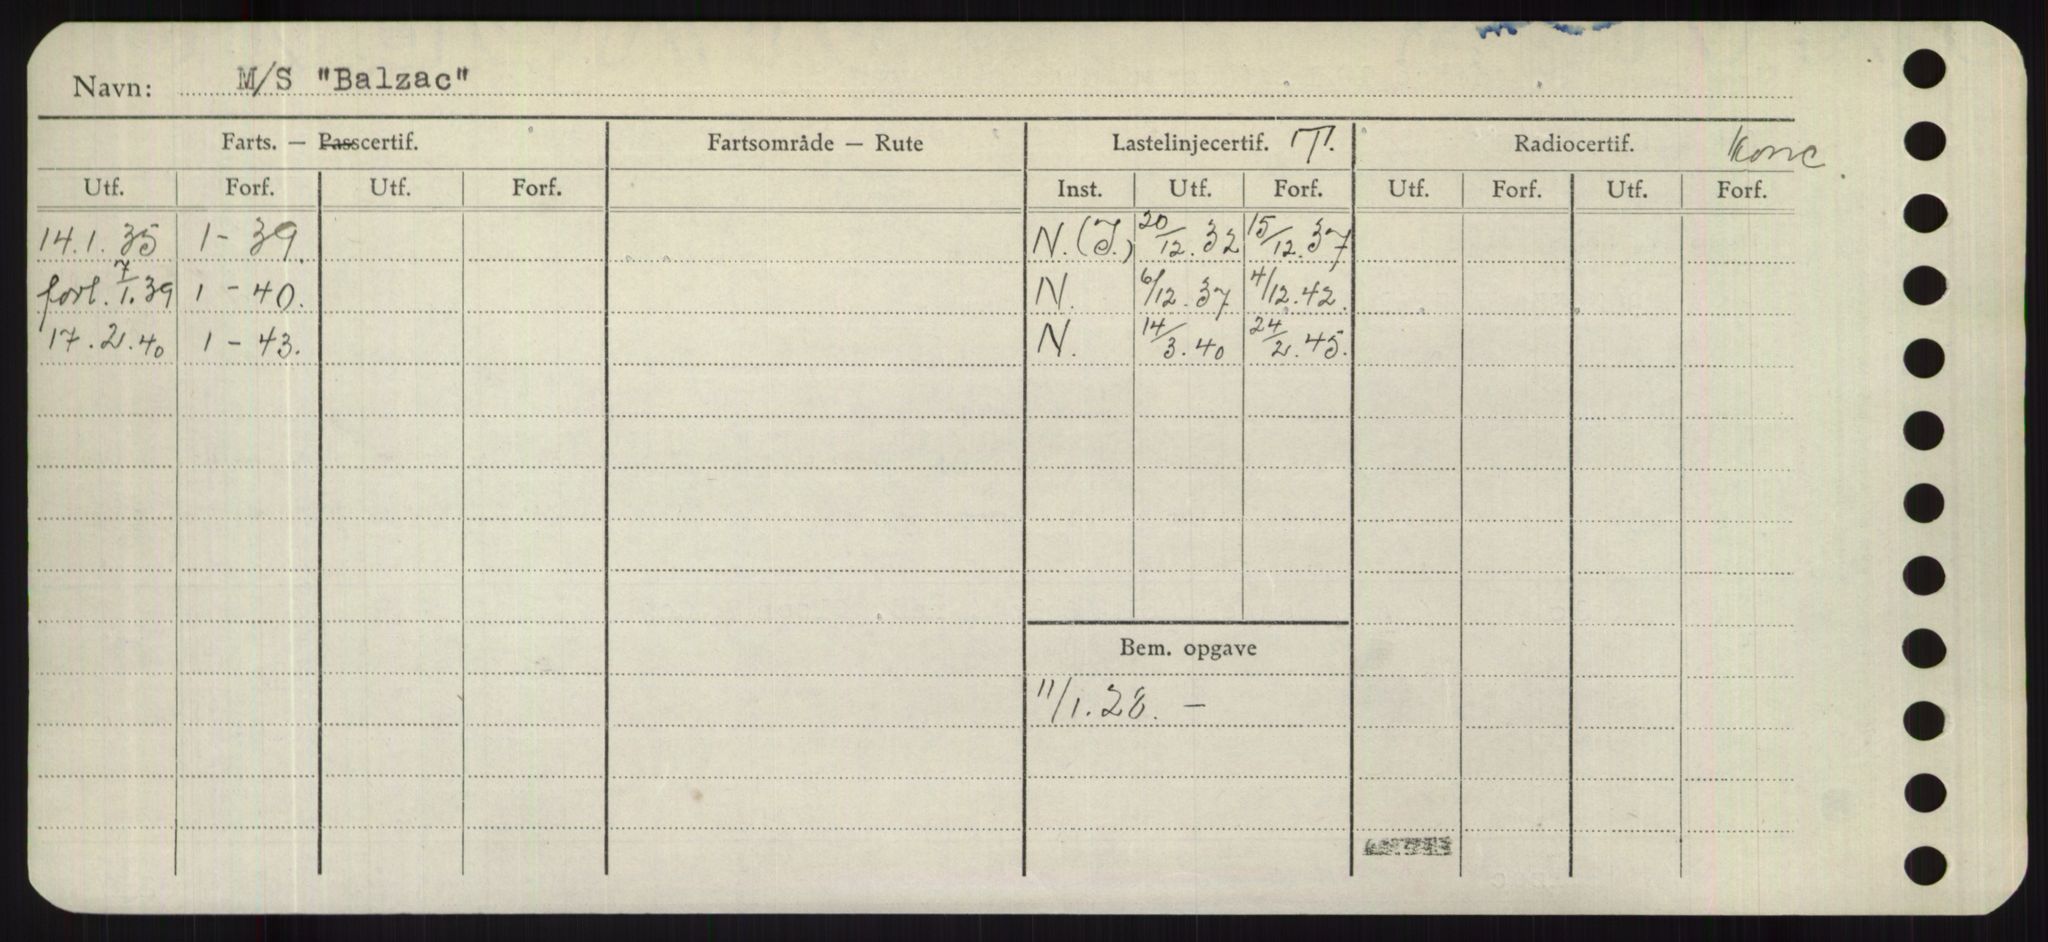 Navn: M/S "Balzac"
Farts. — Passcertif. Fartsområde — Rute Lastelinjecertif. T. Radiocertif. Konc
Utf. Forf. Utf. Forf. Inst. Utf. Forf. Utf. Forf. Utf. Forf.
14.1.35 1 - 39. N. (I.) 20/12.32 15/12.37
forl. 7/1.39 1 - 40. N. 6/12.37 4/12.42.
17.2.40 1 - 43. N. 14/3.40 24/2.45.
Bem. opgave
11/1.28. —